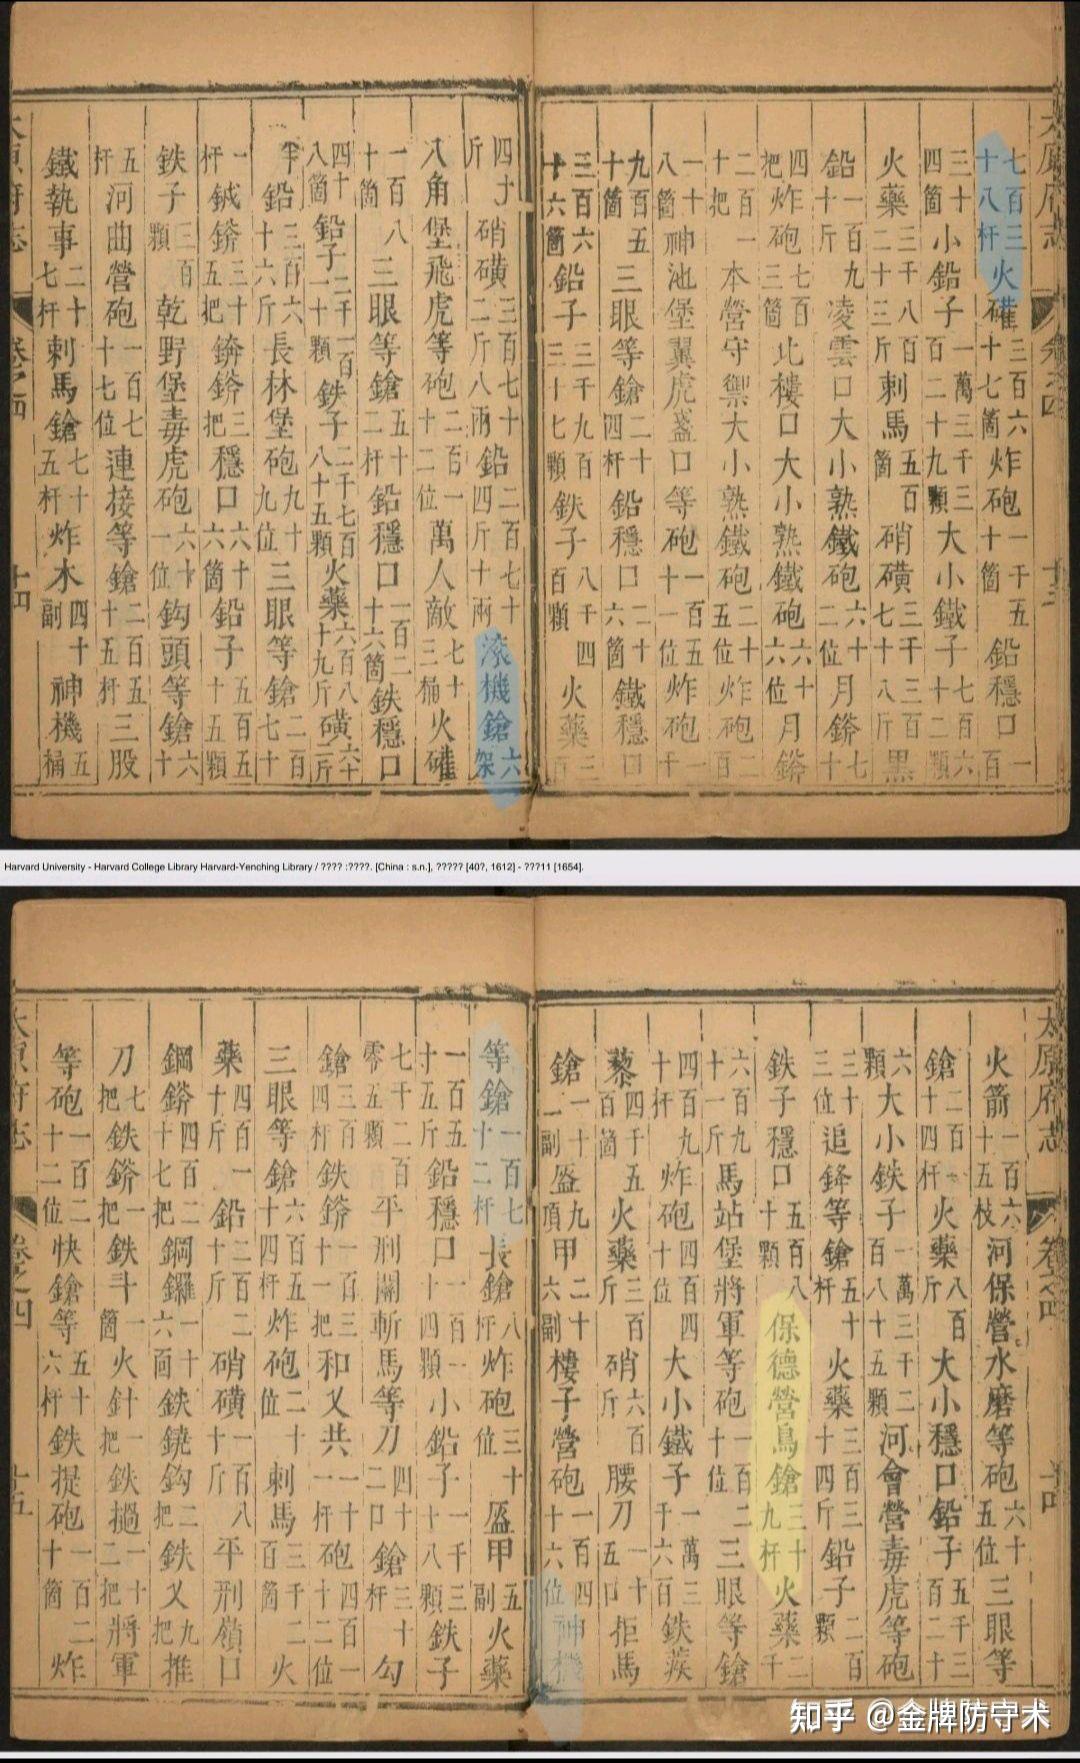 太原府志 卷之四 十三
七百三十八杆火礶三百六十七箇炸砲一千五十箇鉛穩口一百
三十四箇小鉛子一萬三千三百二十九顆大小鐵子七百六十二顆
火藥三千八百二十三斤刺馬五百箇硝磺三千三百七十八斤黒
鉛一百九十斤凌雲口大小熟鐵砲六十二位月鎊七十
四把炸砲七百三箇北樓口大小熟鐵砲六十六位月鎊
二百一十把本營守禦大小熟鐵砲二十五位炸砲二百
一十八箇神池堡翼虎盞口等砲一百五十一位炸砲一千
九百五十箇三眼等鎗二十四杆鉛穩口二十六箇鐵穩口
三百六十六箇鉛子三千九百三十七顆鉄子八千四百顆火藥三百
四十斤硝磺三百七十二斤八兩鉛二百七十四斤十兩滚機鎗六架
八角堡飛虎等砲二百一十二位萬人敵七十三桶火礶
一百八十箇三眼等鎗五十二杆鉛穩口一百二十六箇鉄穩口
四十八箇鉛子二千一百一十顆鉄子二千七百八十五顆火藥六百八十九斤磺六十二斤
半鉛三百六十六斤長林堡砲九十九位三眼等鎗二百七十
一杆鉞鎊三十五把錛鎊三把穩口六十六箇鉛子五百五十五顆
鉄子三百三顆乾野堡毒虎砲六十一位鈎頭等鎗六十
五杆河曲營砲一百七十七位連接等鎗二百五十五杆三股
鐵執事二十七杆刺馬鎗七十五杆炸水四十副神機五桶
太原府志 卷之四 十四
Harvard University - Harvard College Library Harvard-Yenching Library / ???? :????. [China : s.n.], ????? [40?, 1612] - ???11 [1654].
太原府志 卷之四 十四
火箭一百六十五枝河保營水磨等砲六十五位三眼等
鎗二百一十四杆火藥八百斤大小穩口鉛子五千三百二十
六顆大小鉄子一萬三千二百八十五顆河會營毒虎等砲
三十二位追鋒等鎗五十杆火藥三百三十四斤鉛子二百顆
鉄子穩口五百八十顆保德營鳥鎗三十九杆火藥二千
六百九十一斤馬站堡將軍等砲一百二十位三眼等鎗
四百九十杆炸砲四百四十位大小鐵子一萬三千六百鉄蒺
藜四千五百箇火藥三百斤硝六百斤腰刀一十五口拒馬
鎗一十一副盔九頂甲二十六副樓子營砲一百四十六位神機
等鎗一百七十二杆長鎗八杆炸砲三十位盔甲五副火藥
一百五十五斤鉛穩口一百一十四顆小鉛子一千三十八顆鉄子
七千二百零五顆平刑關斬馬等刀四十二口鎗三十杆勾
鎗三百四杆鉄鎊一百三十一把和叉共一十一杆砲四百一十二位
三眼等鎗六百五十四杆炸砲二十位刺馬三千二百箇火
藥四百一十斤鉛二百二十斤硝磺一百八十斤平刑嶺口
鋼鎊四百二十七把鋼鑼一十六面鉄鐃鈎二把鉄叉九把推
刀七把鉄鎊一把鉄斗一箇火針一把鉄撾一十二把將軍
等砲一百二十二位快鎗等五十六杆鉄提砲一百二十箇炸
太原府志 卷之四 十五
知乎 @金牌防守术